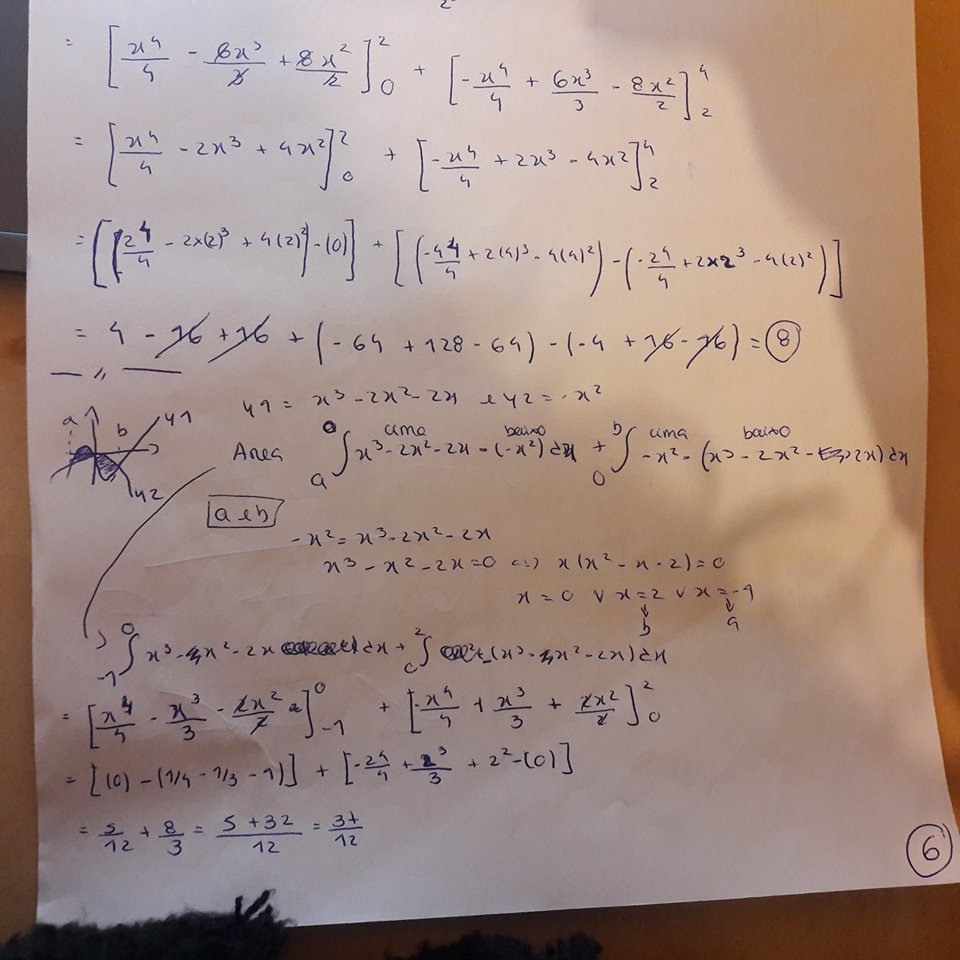 = [x⁴/4 - 6x³/3 + 8x²/2]₀² + [-x⁴/4 + 6x³/3 - 8x²/2]₂⁴
= [x⁴/4 - 2x³ + 4x²]₀² + [-x⁴/4 + 2x³ - 4x²]₂⁴
= [(2⁴/4 - 2×(2)³ + 4(2)²) - (0)] + [(-4⁴/4 + 2(4)³ - 4(4)²) - (-2⁴/4 + 2×2³ - 4(2)²)]
= 4 - 16 + 16 + (-64 + 128 - 64) - (-4 + 16 - 16) = 8
— // —
y1 = x³ - 2x² - 2x e y2 = -x²
a b y1 y2
cima baixo cima baixo
Area ∫ₐ⁰ x³ - 2x² - 2x - (-x²) dx + ∫₀ᵇ -x² - (x³ - 2x² - 2x) dx
a e b
-x² = x³ - 2x² - 2x
x³ - x² - 2x = 0 <=> x(x² - x - 2) = 0
x = 0 ∨ x = 2 ∨ x = -1
b a
∫₋₁⁰ x³ - x² - 2x dx + ∫₀² -(x³ - x² - 2x) dx
= [x⁴/4 - x³/3 - 2x²/2]₋₁⁰ + [-x⁴/4 + x³/3 + 2x²/2]₀²
= [(0) - (1/4 - 1/3 - 1)] + [-2⁴/4 + 2³/3 + 2² - (0)]
= 5/12 + 8/3 = 5 + 32/12 = 37/12
6